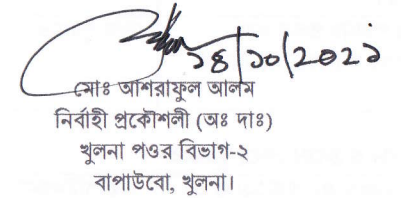 ১৪/১০/২০২১
মোঃ আশরাফুল আলম
নির্বাহী প্রকৌশলী (অঃ দাঃ)
খুলনা পওর বিভাগ-২
বাপাউবো, খুলনা।